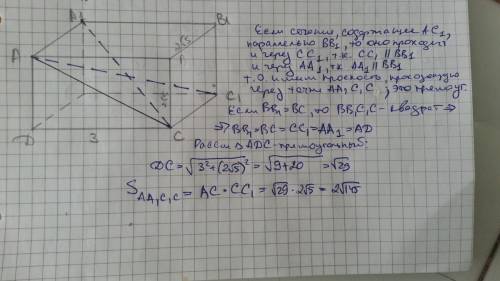 A₁
B₁
A
2√5
1
C₁
C
D
3
Если сечение, содержащее AC₁,
параллельно BB₁, то оно проходит
и через CC₁, т.к. CC₁ ∥ BB₁
и через AA₁, т.к. AA₁ ∥ BB₁
т.о. имеем плоскость, проходящую
через точки AA₁C₁C, это прямоуг.
Если BB₁=BC, то BB₁C₁C - квадрат ⇒
⇒ BB₁=BC=CC₁=AA₁=AD
Рассм △ADC - прямоугольный:
DC = √3²+(2√5)² = √9+20 = √29
S AA₁C₁C = AC · CC₁ = √29 · 2√5 = 2√145